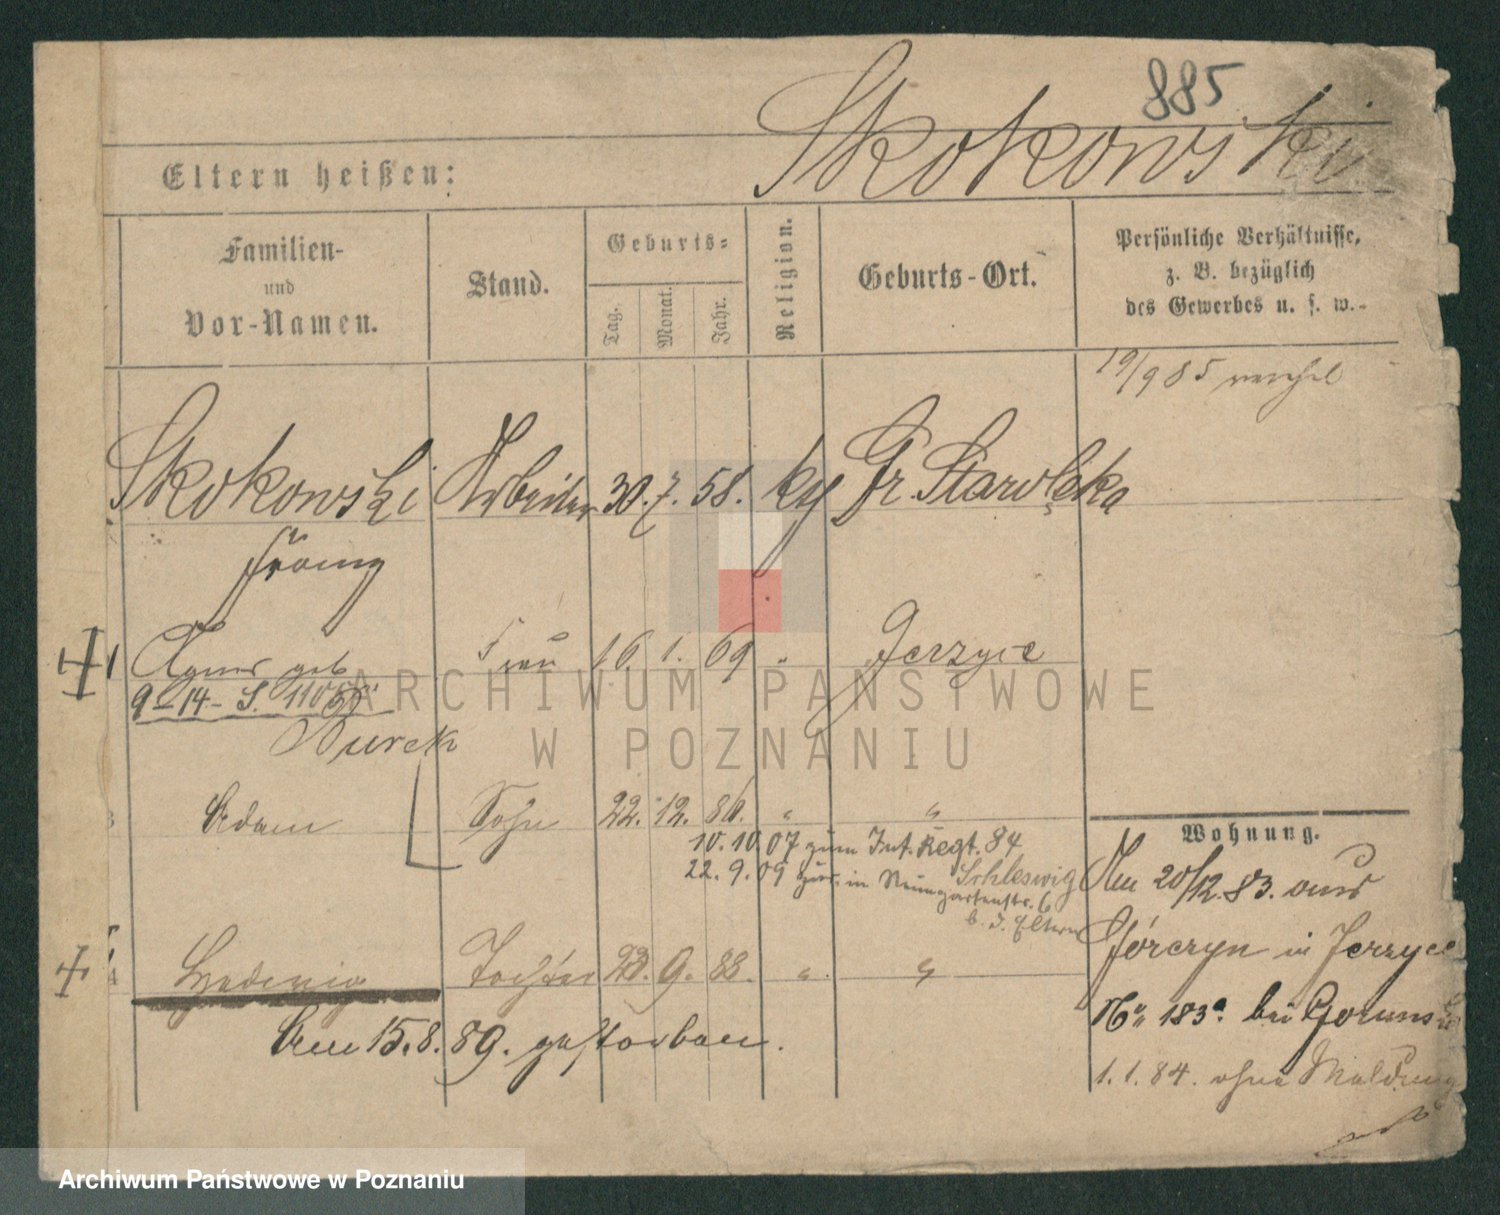 885
Skokowski
Eltern heißen:
Familien-
und
Vor-Namen.
Stand.
Geburts-
Tag.
Monat.
Jahr.
Religion.
Geburts-Ort.
Persönliche Verhältnisse,
z. B. bezüglich
des Gewerbes u. s. w.
19/9 85
Skokowski Arbeiter 30. 7. 58. Gr. Starolęka
Franz
Agnes geb Frau 16. 1. 69 " Jerzyce
9 14
Adam Sohn 22. 12. 86. " "
10. 10. 07 zum Inf. Regt. 84
Schleswig
22. 9. 09 zur. in Neumgartenstr. 6
b. d. Eltern
Hedwig Tochter 23. 9. 88. " "
Am 15. 8. 89. gestorben.
Wohnung.
Am 20/12. 83. aus
Górczyn in Jerzyce
No 183a. bei
1. 1. 84. ohne Meldung
ARCHIWUM PAŃSTWOWE
W POZNANIU
Archiwum Państwowe w Poznaniu